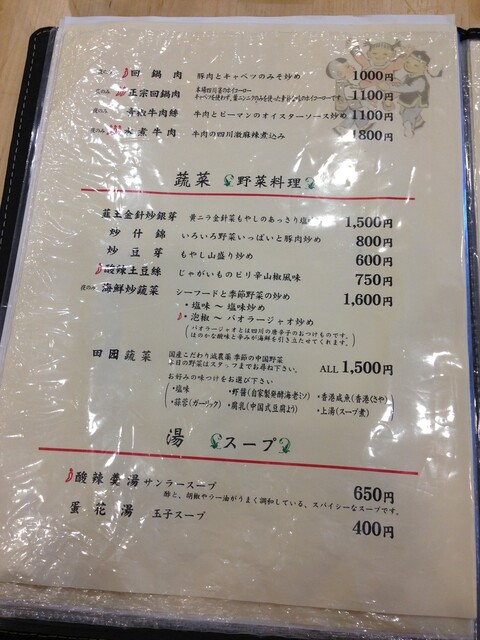 回鍋肉 豚肉とキャベツのみそ炒め 1000円
正宗回鍋肉 本場四川省のホイコーロー 1100円
キャベツを使わず、葉ニンニクのみを使った昔ながらのホイコーローです
牛肉絲 牛肉とピーマンのオイスターソース炒め 1100円
水煮牛肉 牛肉の四川激麻辣煮込み 1800円
蔬菜 野菜料理
韮王金針炒銀芽 黄ニラ金針菜もやしのあっさり塩 1,500円
炒什錦 いろいろ野菜いっぱいと豚肉炒め 800円
炒豆芽 もやし山盛り炒め 600円
酸辣土豆絲 じゃがいものピリ辛山椒風味 750円
夜のみ 海鮮炒蔬菜 シーフードと季節野菜の炒め 1,600円
・塩味 〜 塩味炒め
・泡椒 〜 パオラージャオ炒め
(パオラージャオとは四川の唐辛子のおつけものです。
ほのかな酸味と辛みが海鮮を引き立たせてくれます。)
田園蔬菜 国産こだわり減農薬 季節の中国野菜 ALL 1,500円
本日の野菜はスタッフまでお尋ね下さい。
お好みの味つけをお選び下さい
・塩味 ・野醤(自家製発酵海老ミソ) ・香港咸魚(香港くさや)
・蒜蓉(ガーリック) ・腐乳(中国式豆腐よう) ・上湯(スープ煮)
湯 スープ
酸辣羹湯 サンラースープ 650円
酢と、胡椒やラー油がうまく調和している、スパイシーなスープです。
蛋花湯 玉子スープ 400円